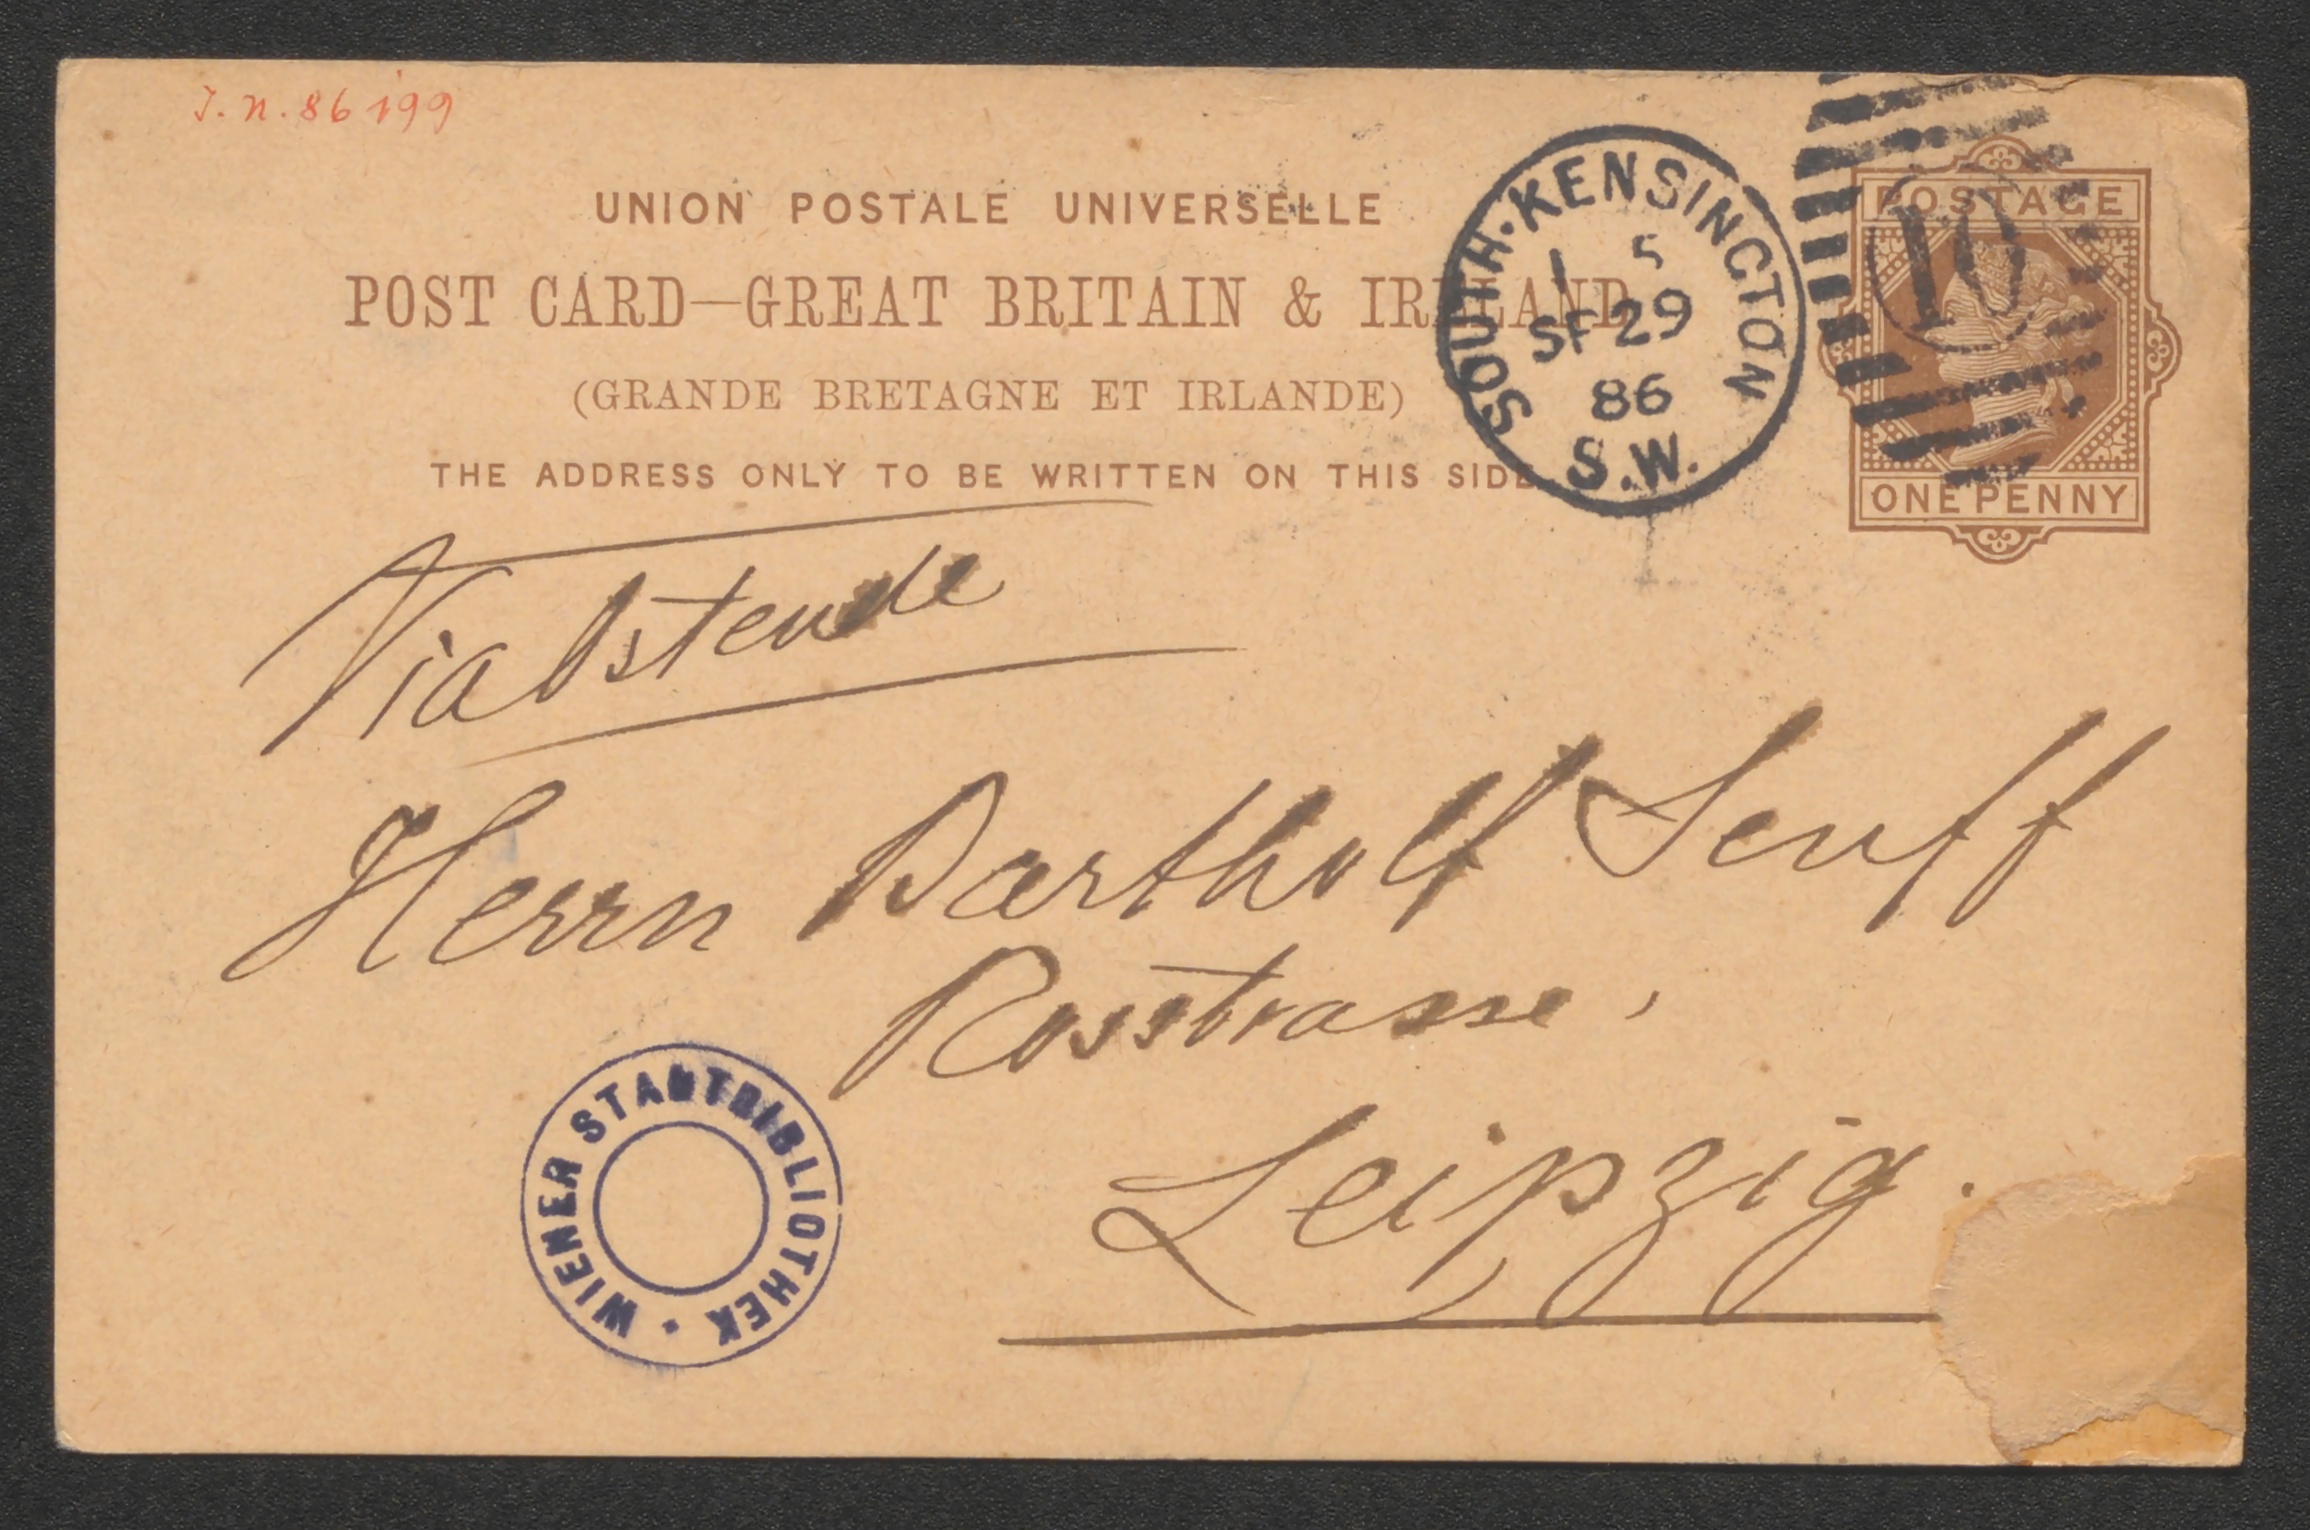 J. N. 86199
UNION POSTALE UNIVERSELLE
POST CARD—GREAT BRITAIN & IRELAND
(GRANDE BRETAGNE ET IRLANDE)
THE ADDRESS ONLY TO BE WRITTEN ON THIS SIDE
SOUTH·KENSINGTON
1 5
SP 29
86
S.W.
10
POSTAGE
ONE PENNY
Via Ostende
Herrn Bartholf Senff
Rosstrasse,
Leipzig.
WIENER STADTBIBLIOTHEK